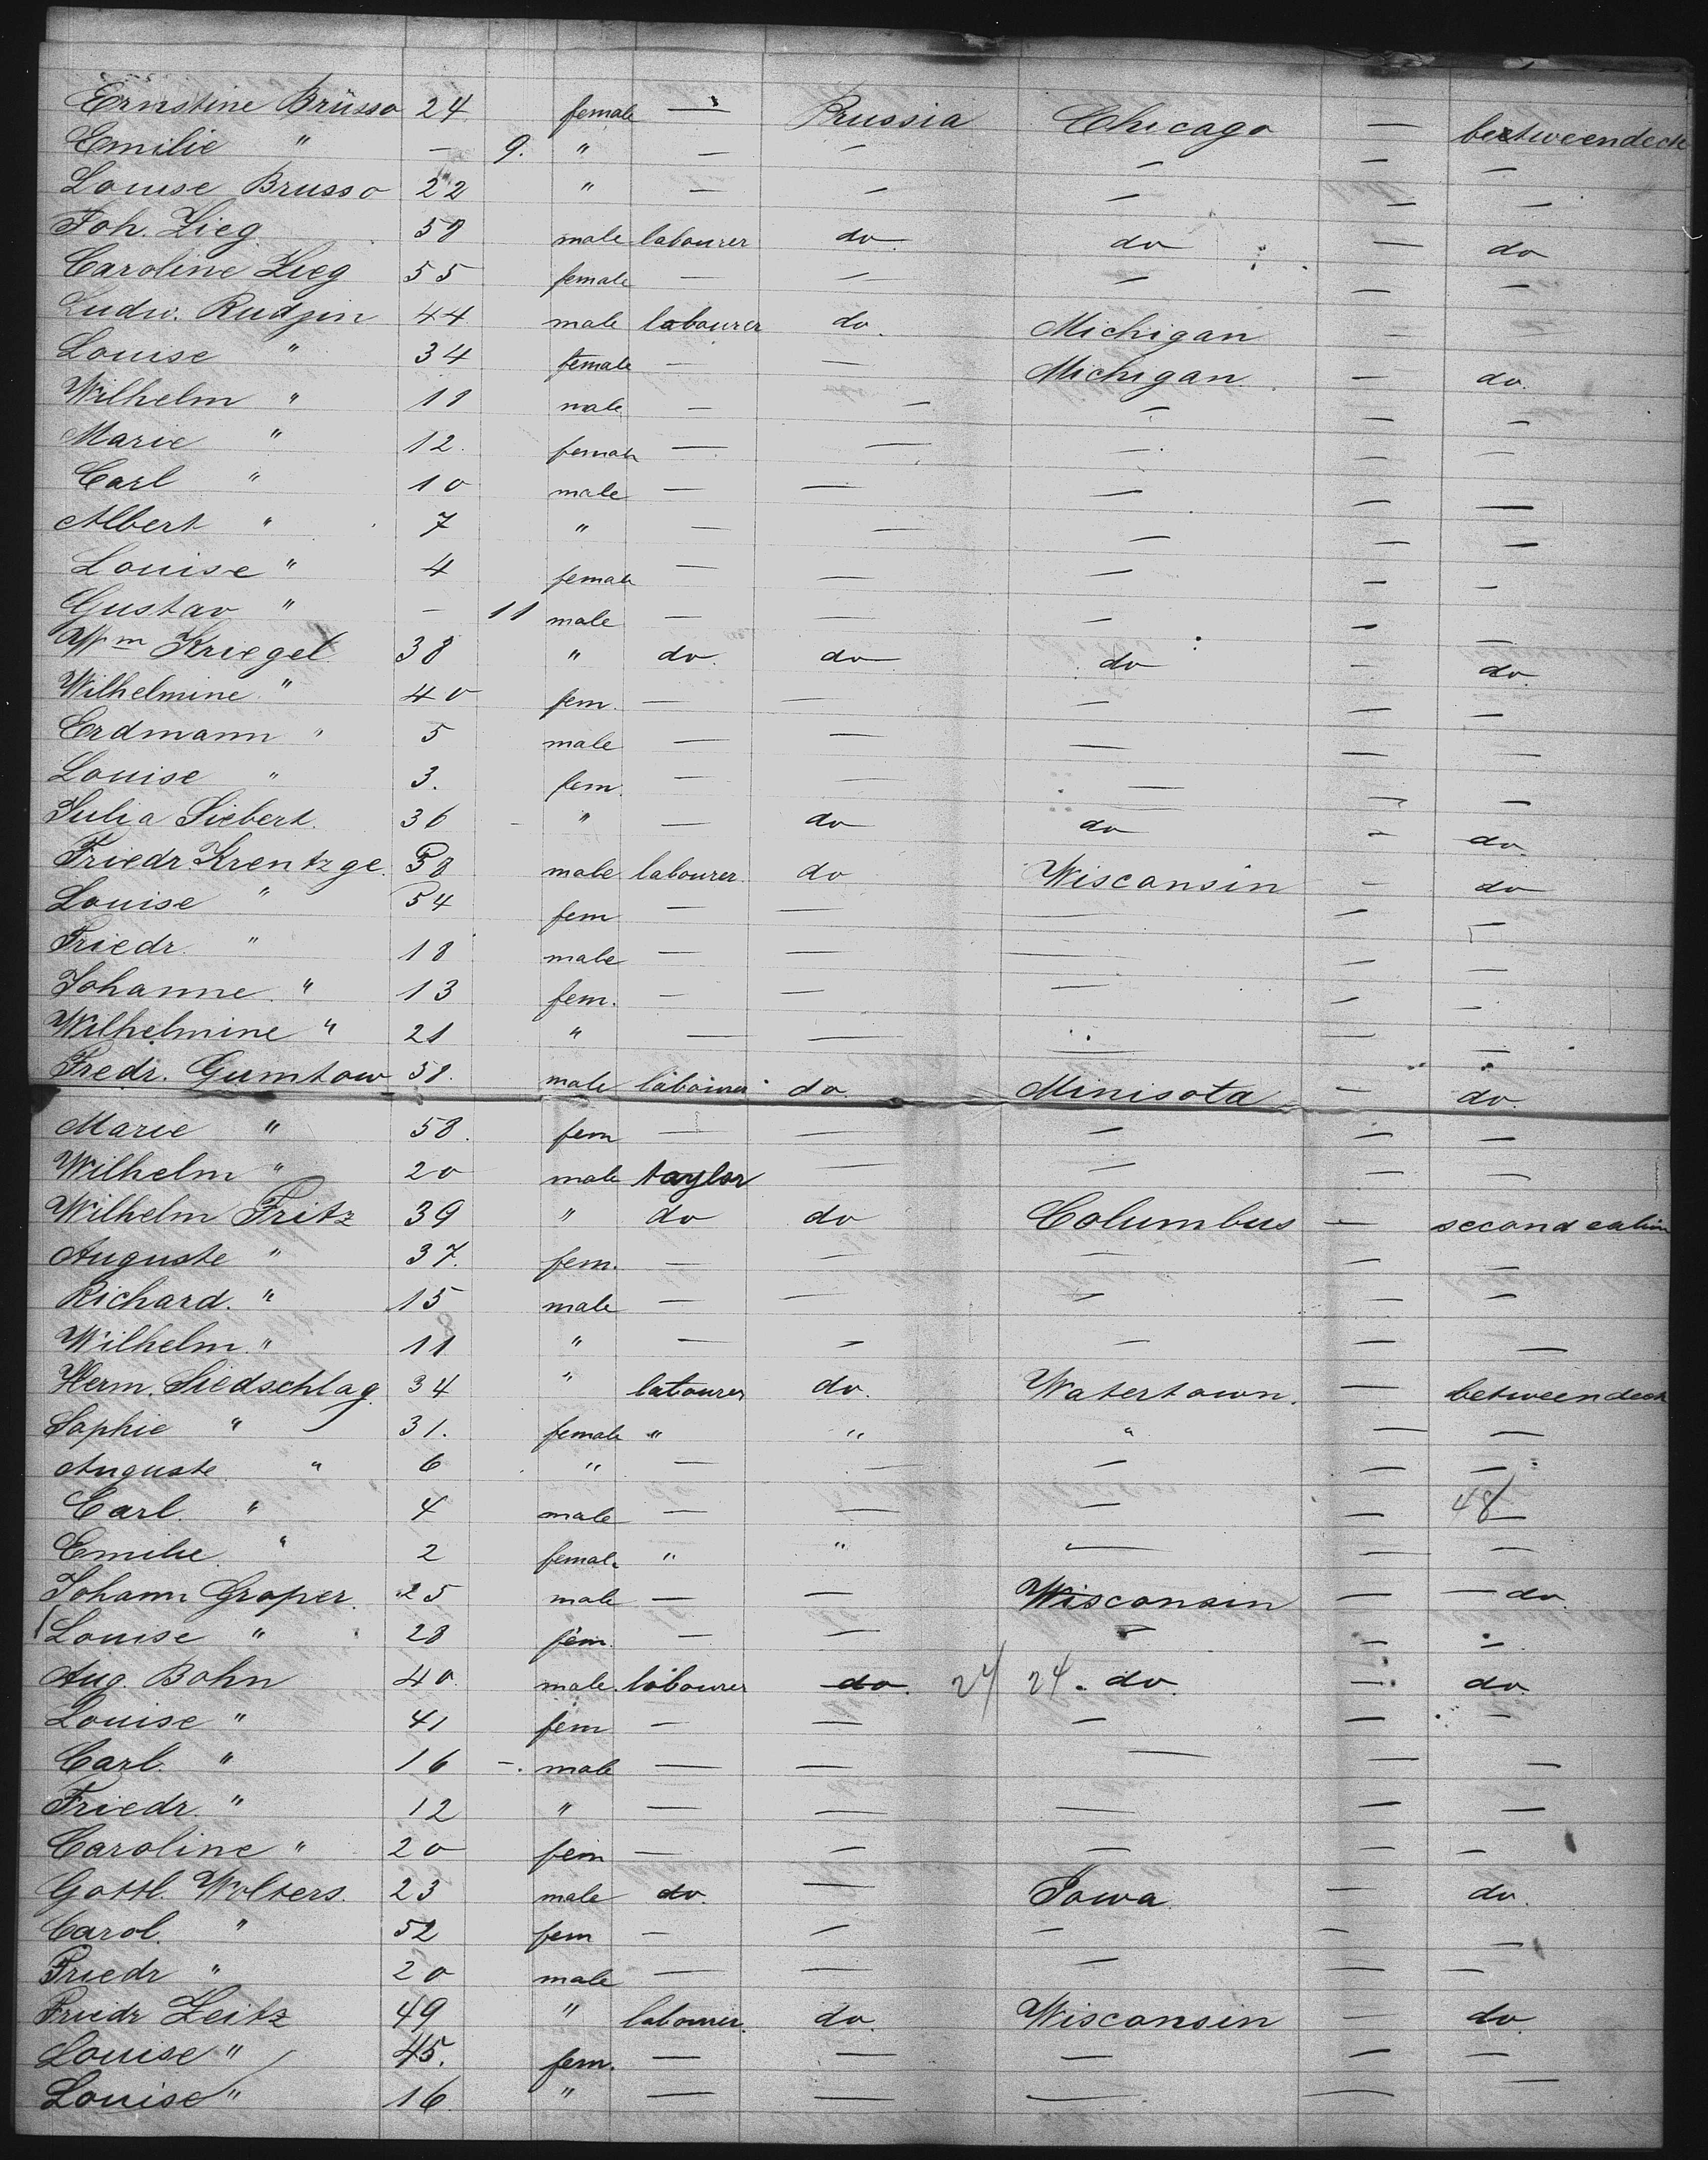 Ernstine Brüsso 24 female — Prussia Chicago — betweendeck
Emilie " — 9. " — — — — —
Louise Brusso 22 " — — — — —
Joh. Zieg 58 male labourer do. do — do
Caroline Zieg 55 female — — — — —
Ludw. Rudzin 44 male labourer do. Michigan — —
Louise " 34 female — — Michigan — do.
Wilhelm " 18 male — — — — —
Marie " 12. female — — — — —
Carl " 10 male — — — — —
Albert " 7 " — — — — —
Louise " 4 female — — — — —
Gustav " — 11 male — — — — —
Wm Kriegel 38 " do. do do — do.
Wilhelmine " 40 fem. — — — — —
Erdmann " 5 male — — — — —
Louise " 3. fem. — — — — —
Julia Siebert. 36 - " — do do — do.
Friedr. Krentzge. 58 male labourer. do Wisconsin — do
Louise " 54 fem — — — — —
Friedr. " 18 male — — — — —
Johanne. " 13 fem. — — — — —
Wilhelmine " 21 " — — — — —
Fredr. Gumtow 58. male labourer do. Minisota — do.
Marie " 58. fem — — — — —
Wilhelm " 20 male taylor — — — —
Wilhelm Fritz 39 " do do Columbus — second cabin
Auguste " 37. fem. — — — — —
Richard. " 15 male — — — — —
Wilhelm. " 11 " — — — — —
Herm. Siedschlag. 34 " labourer do. Watertown. — betweendeck
Sophie " 31. female " " " — —
Auguste. " 6 " — — — — —
Carl. " 4 male — — — — 48
Emilie. " 2 female " " — — —
Johann Groper. 25 male — — Wisconsin — — do.
Louise " 28 fem. — — — — —
Aug. Bohn 40 male. labourer do. 24 24 do. — do.
Louise " 41 fem — — — — —
Carl. " 16 -. male — — — — —
Friedr. " 12 " — — — — —
Caroline " 20 fem — — — — —
Gottl. Wolters. 23 male do. — Iowa. — do.
Carol. " 52 fem — — — — —
Friedr " 20 male — — — — —
Friedr Zeitz 49 " labourer. do. Wisconsin — do
Louise " 45. fem. — — — — —
Louise " 16. " — — — — —